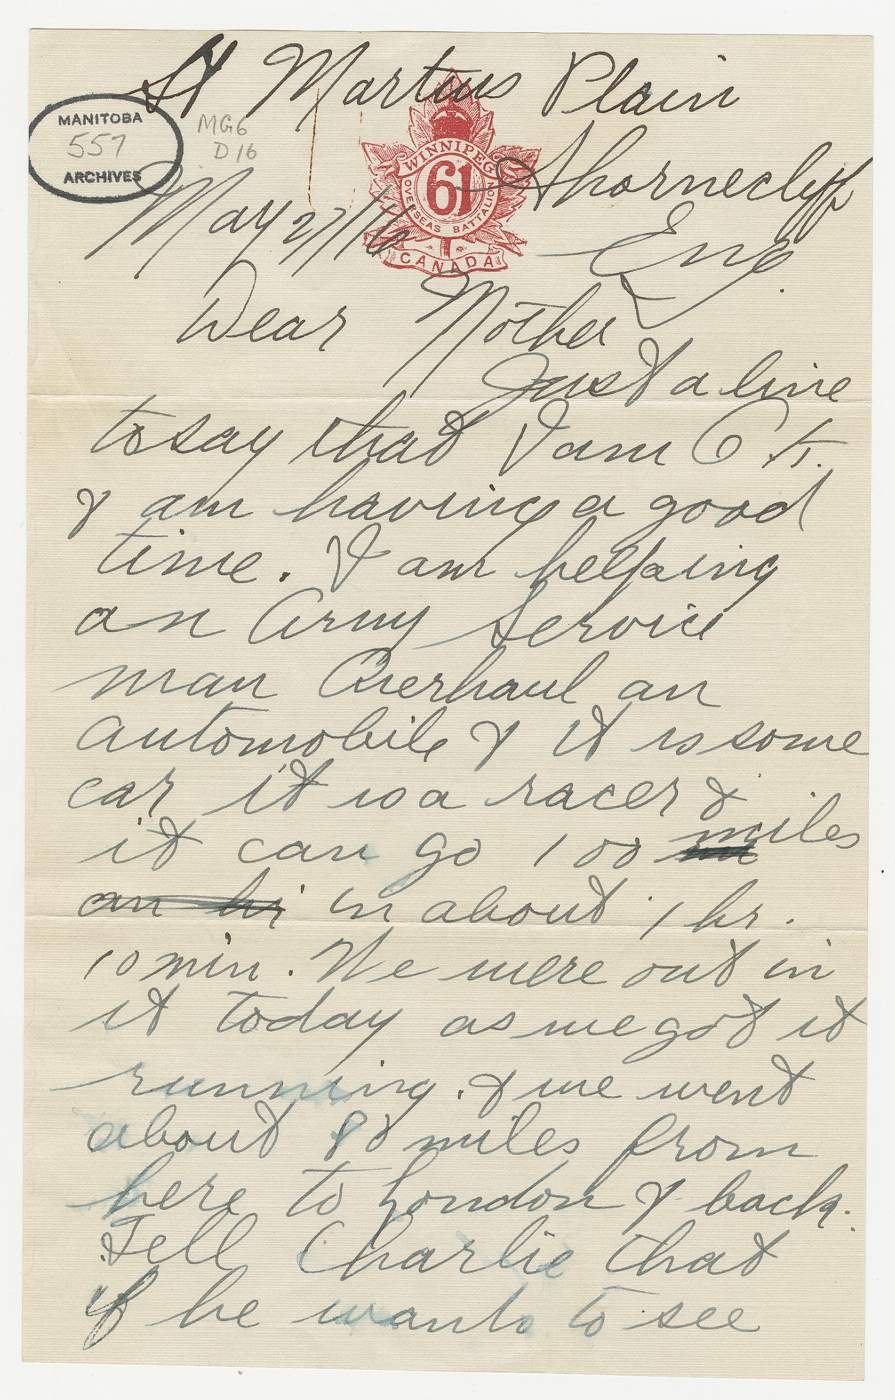 St Martins Plain
MANITOBA
557
ARCHIVES
MG6
D16
WINNIPEG
61
OVERSEAS BATTALION
CANADA
Shornecliff
May 27/16
Eng.
Dear Mother
Just a line
to say that I am O K.
& am having a good
time. I am helping
an Army Service
man Overhaul an
automobile & it is some
car it is a racer &
it can go 100 miles
an hr in about 1 hr.
10 min. We were out in
it today as we got it
running. & we went
about 80 miles from
here to London & back.
Tell Charlie that
if he wants to see